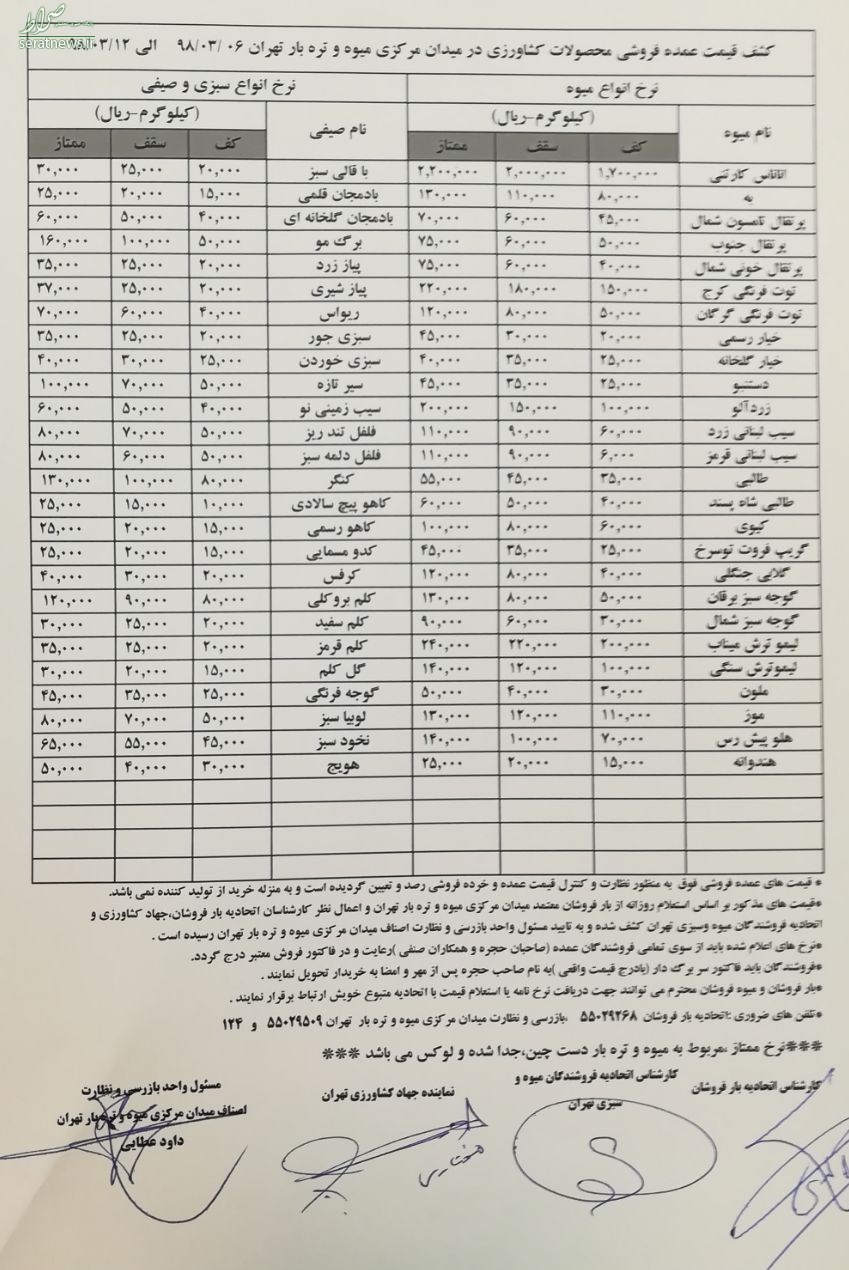 صراط
seratnews.ir
کشف قیمت عمده فروشی محصولات کشاورزی در میدان مرکزی میوه و تره بار تهران ۰۶ /۹۸/۰۳ الی ۹۸/۰۳/۱۲
نرخ انواع میوه نرخ انواع سبزی و صیفی
نام میوه (کیلوگرم-ریال) نام صیفی (کیلوگرم-ریال)
کف سقف ممتاز کف سقف ممتاز
اناناس کارتنی ۱,۷۰۰,۰۰۰ ۲,۰۰۰,۰۰۰ ۲,۲۰۰,۰۰۰ با قالی سبز ۲۰,۰۰۰ ۲۵,۰۰۰ ۳۰,۰۰۰
به ۸۰,۰۰۰ ۱۱۰,۰۰۰ ۱۳۰,۰۰۰ بادمجان قلمی ۱۵,۰۰۰ ۲۰,۰۰۰ ۲۵,۰۰۰
پرتقال تامسون شمال ۴۵,۰۰۰ ۶۰,۰۰۰ ۷۰,۰۰۰ بادمجان گلخانه ای ۴۰,۰۰۰ ۵۰,۰۰۰ ۶۰,۰۰۰
پرتقال جنوب ۵۰,۰۰۰ ۶۰,۰۰۰ ۷۵,۰۰۰ برگ مو ۵۰,۰۰۰ ۱۰۰,۰۰۰ ۱۶۰,۰۰۰
پرتقال خونی شمال ۴۰,۰۰۰ ۶۰,۰۰۰ ۷۵,۰۰۰ پیاز زرد ۲۰,۰۰۰ ۲۵,۰۰۰ ۳۵,۰۰۰
توت فرنگی کرج ۱۵۰,۰۰۰ ۱۸۰,۰۰۰ ۲۲۰,۰۰۰ پیاز شیری ۲۰,۰۰۰ ۲۵,۰۰۰ ۳۷,۰۰۰
توت فرنگی گرگان ۵۰,۰۰۰ ۸۰,۰۰۰ ۱۲۰,۰۰۰ ریواس ۴۰,۰۰۰ ۶۰,۰۰۰ ۷۰,۰۰۰
خیار رسمی ۲۰,۰۰۰ ۳۰,۰۰۰ ۴۵,۰۰۰ سبزی جور ۲۰,۰۰۰ ۲۵,۰۰۰ ۳۵,۰۰۰
خیار گلخانه ۲۵,۰۰۰ ۳۵,۰۰۰ ۴۰,۰۰۰ سبزی خوردن ۲۵,۰۰۰ ۳۰,۰۰۰ ۴۰,۰۰۰
دستنبو ۲۵,۰۰۰ ۳۵,۰۰۰ ۴۵,۰۰۰ سیر تازه ۵۰,۰۰۰ ۷۰,۰۰۰ ۱۰۰,۰۰۰
زردآلو ۱۰۰,۰۰۰ ۱۵۰,۰۰۰ ۲۰۰,۰۰۰ سیب زمینی نو ۴۰,۰۰۰ ۵۰,۰۰۰ ۶۰,۰۰۰
سیب لبنانی زرد ۶۰,۰۰۰ ۹۰,۰۰۰ ۱۱۰,۰۰۰ فلفل تند ریز ۵۰,۰۰۰ ۷۰,۰۰۰ ۸۰,۰۰۰
سیب لبنانی قرمز ۶,۰۰۰ ۹۰,۰۰۰ ۱۱۰,۰۰۰ فلفل دلمه سبز ۵۰,۰۰۰ ۶۰,۰۰۰ ۸۰,۰۰۰
طالبی ۳۵,۰۰۰ ۴۵,۰۰۰ ۵۵,۰۰۰ کنگر ۸۰,۰۰۰ ۱۰۰,۰۰۰ ۱۳۰,۰۰۰
طالبی شاه پسند ۴۰,۰۰۰ ۵۰,۰۰۰ ۶۰,۰۰۰ کاهو پیچ سالادی ۱۰,۰۰۰ ۱۵,۰۰۰ ۲۵,۰۰۰
کیوی ۶۰,۰۰۰ ۸۰,۰۰۰ ۱۰۰,۰۰۰ کاهو رسمی ۱۵,۰۰۰ ۲۰,۰۰۰ ۲۵,۰۰۰
گریپ فروت توسرخ ۲۵,۰۰۰ ۳۵,۰۰۰ ۴۵,۰۰۰ کدو مسمایی ۱۵,۰۰۰ ۲۰,۰۰۰ ۲۵,۰۰۰
گلابی جنگلی ۴۰,۰۰۰ ۸۰,۰۰۰ ۱۲۰,۰۰۰ کرفس ۲۰,۰۰۰ ۳۰,۰۰۰ ۴۰,۰۰۰
گوجه سبز برقان ۵۰,۰۰۰ ۸۰,۰۰۰ ۱۳۰,۰۰۰ کلم بروکلی ۸۰,۰۰۰ ۹۰,۰۰۰ ۱۲۰,۰۰۰
گوجه سبز شمال ۳۰,۰۰۰ ۶۰,۰۰۰ ۹۰,۰۰۰ کلم سفید ۲۰,۰۰۰ ۲۵,۰۰۰ ۳۰,۰۰۰
لیمو ترش میناب ۲۰۰,۰۰۰ ۲۲۰,۰۰۰ ۲۴۰,۰۰۰ کلم قرمز ۲۰,۰۰۰ ۲۵,۰۰۰ ۳۵,۰۰۰
لیموترش سنگی ۱۰۰,۰۰۰ ۱۲۰,۰۰۰ ۱۴۰,۰۰۰ گل کلم ۱۵,۰۰۰ ۲۰,۰۰۰ ۳۰,۰۰۰
ملون ۳۰,۰۰۰ ۴۰,۰۰۰ ۵۰,۰۰۰ گوجه فرنگی ۲۵,۰۰۰ ۳۵,۰۰۰ ۴۵,۰۰۰
موز ۱۱۰,۰۰۰ ۱۲۰,۰۰۰ ۱۳۰,۰۰۰ لوبیا سبز ۵۰,۰۰۰ ۷۰,۰۰۰ ۸۰,۰۰۰
هلو پیش رس ۷۰,۰۰۰ ۱۰۰,۰۰۰ ۱۴۰,۰۰۰ نخود سبز ۴۵,۰۰۰ ۵۵,۰۰۰ ۶۵,۰۰۰
هندوانه ۱۵,۰۰۰ ۲۰,۰۰۰ ۲۵,۰۰۰ هویج ۳۰,۰۰۰ ۴۰,۰۰۰ ۵۰,۰۰۰
* قیمت های عمده فروشی فوق به منظور نظارت و کنترل قیمت عمده و خرده فروشی رصد و تعیین گردیده است و به منزله خرید از تولید کننده نمی باشد.
*قیمت های مذکور بر اساس استعلام روزانه از بار فروشان معتمد میدان مرکزی میوه و تره بار تهران و اعمال نظر کارشناسان اتحادیه بار فروشان،جهاد کشاورزی و
اتحادیه فروشندگان میوه وسبزی تهران کشف شده و به تایید مسئول واحد بازرسی و نظارت اصناف میدان مرکزی میوه و تره بار تهران رسیده است .
*نرخ های اعلام شده باید از سوی تمامی فروشندگان عمده (صاحبان حجره و همکاران صنفی )رعایت و در فاکتور فروش معتبر درج گردد.
*فروشندگان باید فاکتور سر برگ دار (بادرج قیمت واقعی )به نام صاحب حجره پس از مهر و امضا به خریدار تحویل نمایند .
*بار فروشان و میوه فروشان محترم می توانند جهت دریافت نرخ نامه یا استعلام قیمت با اتحادیه متبوع خویش ارتباط برقرار نمایند .
*تلفن های ضروری :اتحادیه بار فروشان ۵۵۰۲۹۲۶۸ ،بازرسی و نظارت میدان مرکزی میوه و تره بار تهران ۵۵۰۲۹۵۰۹ و ۱۲۴
***نرخ ممتاز ،مربوط به میوه و تره بار دست چین،جدا شده و لوکس می باشد ***
کارشناس اتحادیه بار فروشان
کارشناس اتحادیه فروشندگان میوه و
سبزی تهران
نماینده جهاد کشاورزی تهران
مسئول واحد بازرسی و نظارت
اصناف میدان مرکزی میوه و تره بار تهران
داود عطایی